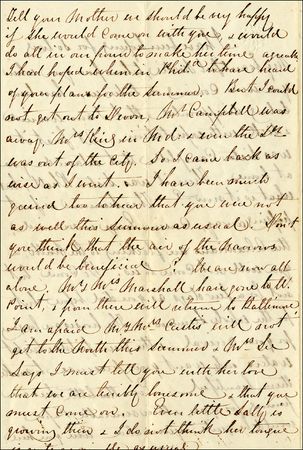 Tell your Mother we should be very happy
if she would come on with you, & would
do all in our power to make her time agreeable
I had hoped when in Phila to have heard
of your plans for the summer. But I could
not get out to Devon, Mrs Campbell was
away, Mrs King in Md. & even the Dr
was out of the city. So I came back as
wise as I went. I have been much
grieved too to hear that you were not
as well this summer as usual. Don't
you think that the air of the Narrows
would be beneficial? We are now all
alone. Mr & Mrs Marshall have gone to W.
Point, & from there will return to Baltimore.
I am afraid Mr & Mrs Custis will not
get to the North this summer & Mrs Lee
says I must tell you with her love
that we are terribly lonesome & that you
must come on. Even little Sally is
growing thin & I do not think her tongue